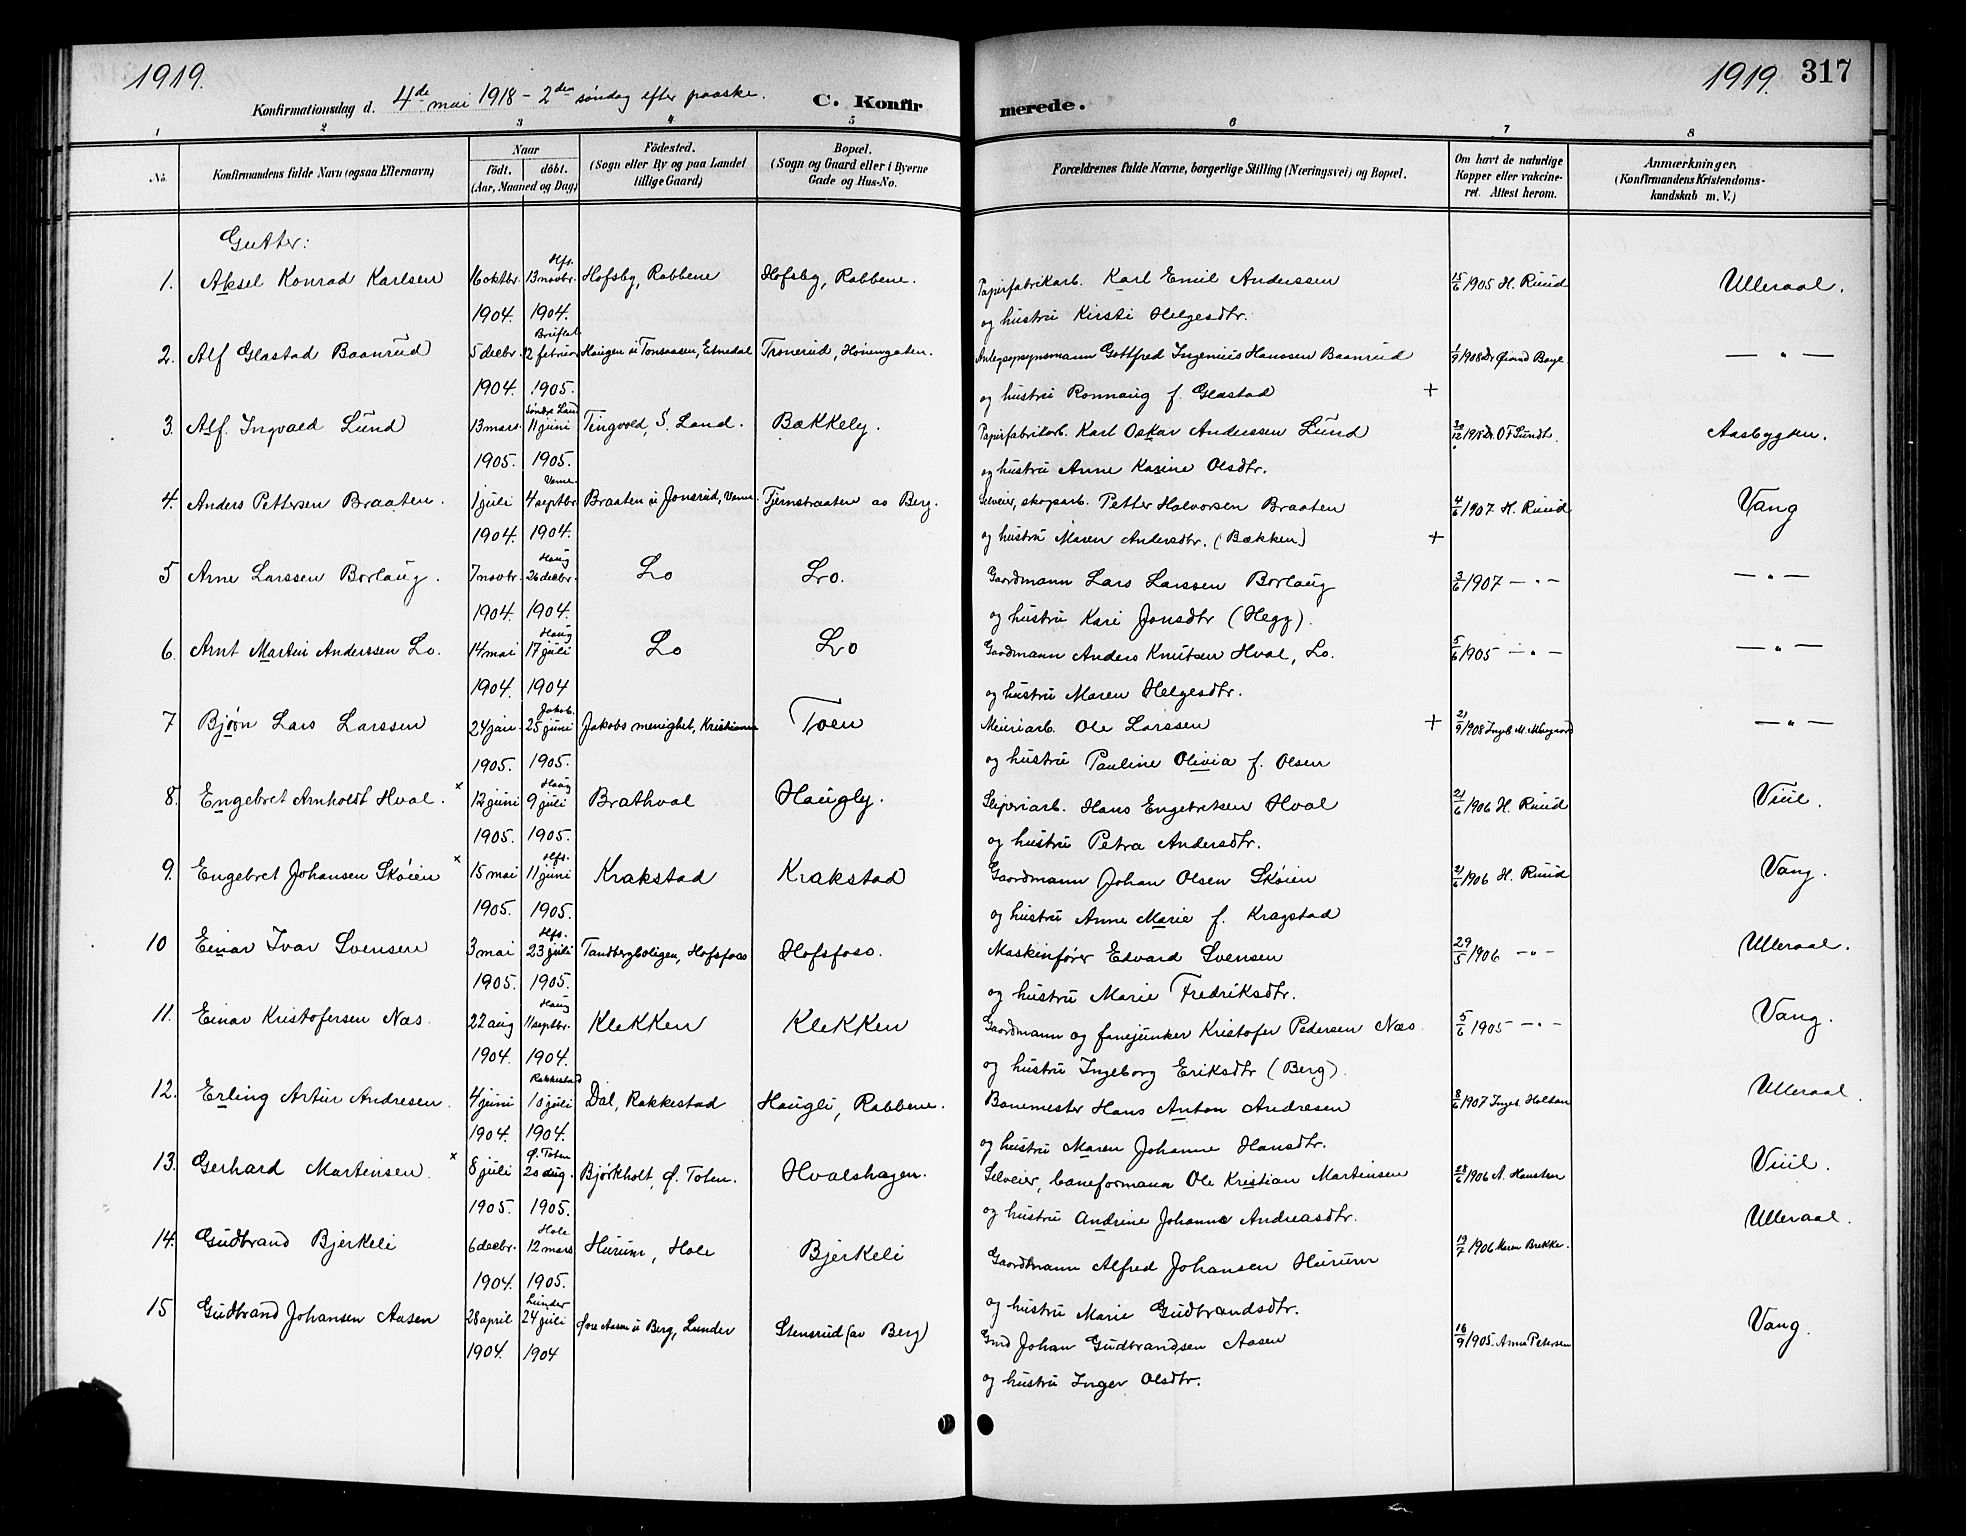 1919.
1919. 317
Konfirmationsdag d. 4de mai 1918 - 2den søndag efter paaske. C. Konfirmerede.
1 2 3 4 5 6 7 8
No. Konfirmandens fulde Navn (ogsaa Efternavn) Naar født. døbt. (Aar, Maaned og Dag) Fødested. (Sogn eller By og paa Landet tillige Gaard) Bopæl. (Sogn og Gaard eller i Byerne Gade og Hus-No. Forældrenes fulde Navne, borgerlige Stilling (Næringsvei) og Bopæl. Om havt de naturlige Kopper eller vakcineret. Attest herom. Anmærkninger, (Konfirmandens Kristendomskundskab m. V.)
Gutter:
1. Aksel Konrad Karlsen 16 oktbr. 1904. Hfs. 13 novbr. 1904. Hofsby, Rabbene Hofsby, Rabbene. Papirfabrikarb. Karl Emil Anderssen 15/6 1905 H. Ruud Ulleraal.
og hustru Kirsti Helgesdtr.
2. Alf Glastad Baanrud 5 decbr. 1904. Bruflat 12 februar 1905. Haugen u Tonsaasen, Etnedal Tronerud, Hønengaten. Anlegsopsynsmann Gottfred Ingenius Hanssen Baanrud 1/9 1908 Dr Øivind Boye — " —
og hustru Ronnaug f. Glastad +
3. Alf Ingvald Lund 13 mars 1905. Søndre Land 11 juni 1905. Tingvold, S. Land. Bækkely. Papirfabrikarb. Karl Oskar Anderssen Lund 30/12 1915 Dr. O F Sundt. Aasbygden.
og hustru Anne Karine Olsdtr.
4. Anders Pettersen Braaten. 1 juli 1904. Veme. 4 septbr. 1904. Braaten u Jonsrud, Veme. Tjernstraaten av Berg. Selveier, skogsarb. Petter Halvorsen Braaten 4/6 1907 H. Ruud Vang
og hustru Maren Andersdtr. (Bækken) +
5 Arne Larssen Borlaug. 7 novbr. 1904. Haug 26 decbr. 1904. Lo Lo. Gaardmann Lars Larssen Borlaug 3/6 1907 — " — — " —
og hustru Kari Jonsdtr (Hegg).
6. Arnt Martin Anderssen Lo. 14 mai 1904. Haug 17 juli 1904 Lo Lo Gaardmann Anders Knutsen Hval, Lo. 5/6 1905 — " — — " —
og hustru Maren Helgesdtr.
7 Bjørn Lars Larssen 24 jan. 1905. Jakob. 25 juni 1905. Jakobs menighet, Kristiania Toen Meieriarb. Ole Larssen + 21/9 1908 — " —
og hustru Pauline Olivia f. Olsen
8. Engebret Arnholdt Hval. x 12 juni 1905. Haug 9 juli 1905. Brathval Haugly. Sliperiarb. Hans Engebretsen Hval 21/6 1906 H. Ruud Viul.
og hustru Petra Andersdtr.
9. Engebret Johansen Skøien x 15 mai 1905. Hfs. 11 juni 1905. Krakstad Krakstad Gaardmann Johan Olsen Skøien 21/6 1906 H. Ruud Vang.
og hustru Anne Marie f. Kragstad
10 Einar Ivar Svensen 3 mai 1905. Hfs. 23 juli 1905. Tandbergboligen, Hofsfoss Hofsfoss. Maskinfører Edvard Svensen 29/5 1906 — " — Ulleraal.
og hustru Marie Fredriksdtr.
11. Einar Kristofersen Næs. 22 aug 1904. Haug 11 septbr. 1904. Klekken Klekken Gaardmann og fanejunker Kristofer Pedersen Næs. 5/6 1905 — " — Vang.
og hustru Ingeborg Eriksdtr (Berg).
12. Erling Artur Andresen. 4 juni 1904. Rakkestad 10 juli 1904. Dal, Rakkestad Haugli, Rabbene. Banemester Hans Anton Andresen 8/6 1907 Inges. Holtan Ulleraal.
og hustru Maren Johanne Hansdtr.
13. Gerhard Martinsen. x 8 juli 1905. Ø. Toten 20 aug. 1905. Bjørkholt, Ø. Toten. Hvalshagen. Selveier, baneformann Ole Kristian Martinsen 28/6 1906 A. Haustan Viul.
og hustru Andrine Johanne Andreasdtr.
14. Gudbrand Bjerkeli 6 decbr. 1904. Hole 12 mars 1905. Hurum, Hole Bjerkeli Gaardmann Alfred Johansen Hurum 19/7 1906 Maren Brekke. Ulleraal.
og hustru Marie Gudbrandsdtr.
15 Gudbrand Johansen Aasen 28 april 1904. Lunder 24 juli 1904 Øvre Aasen u Berg, Lunder Stensrud (av Berg) Gmd Johan Gudbrandsen Aasen 16/9 1905. Anna Petersen Vang.
og hustru Inger Olsdtr.